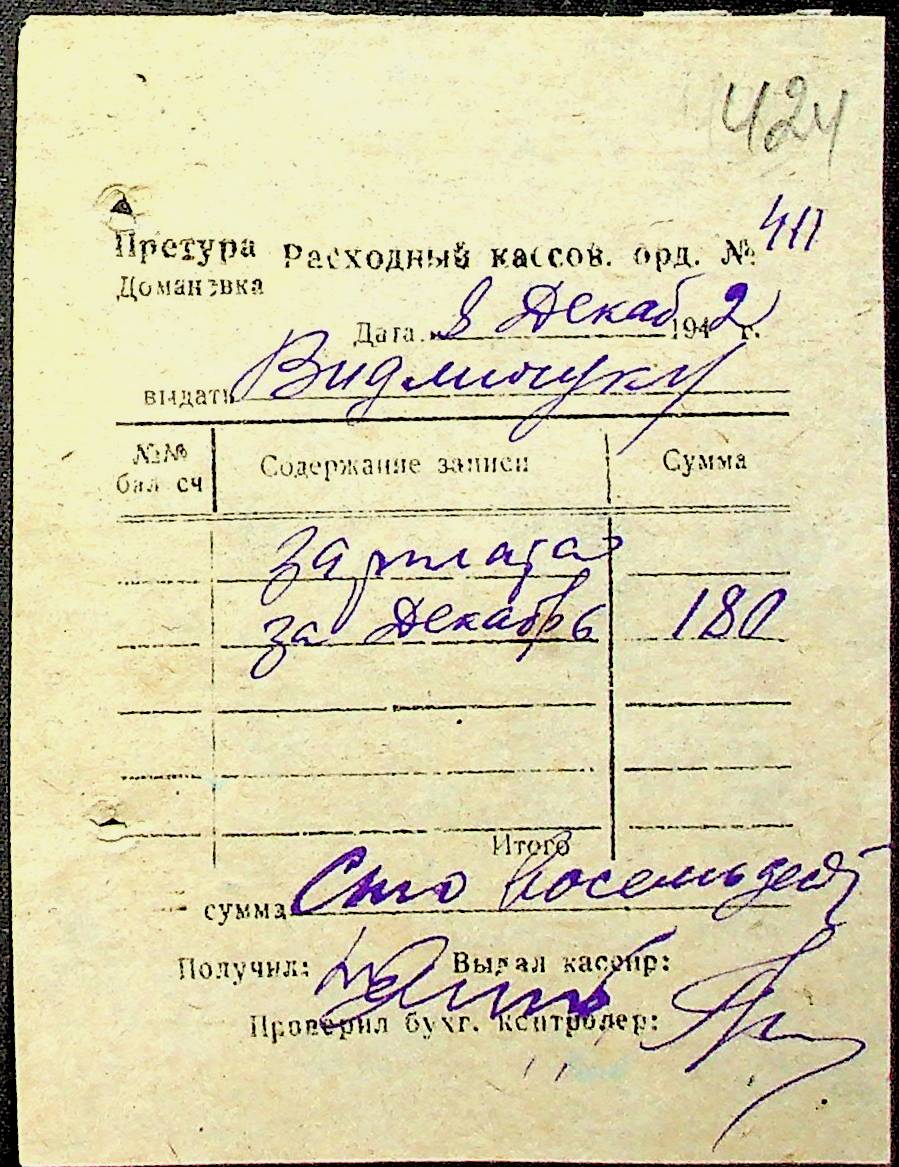 424
Претура Расходный кассов. орд. № 411
Домановка
Дата „8 Декаб 1942 г.
выдать Видмишуку
№№ бал сч
Содержание записи
Сумма
зарплата
за Декабрь 180
Итого
сумма Сто восемьдесят
Получил: Выдал кассир:
Проверил бухг. контролер: